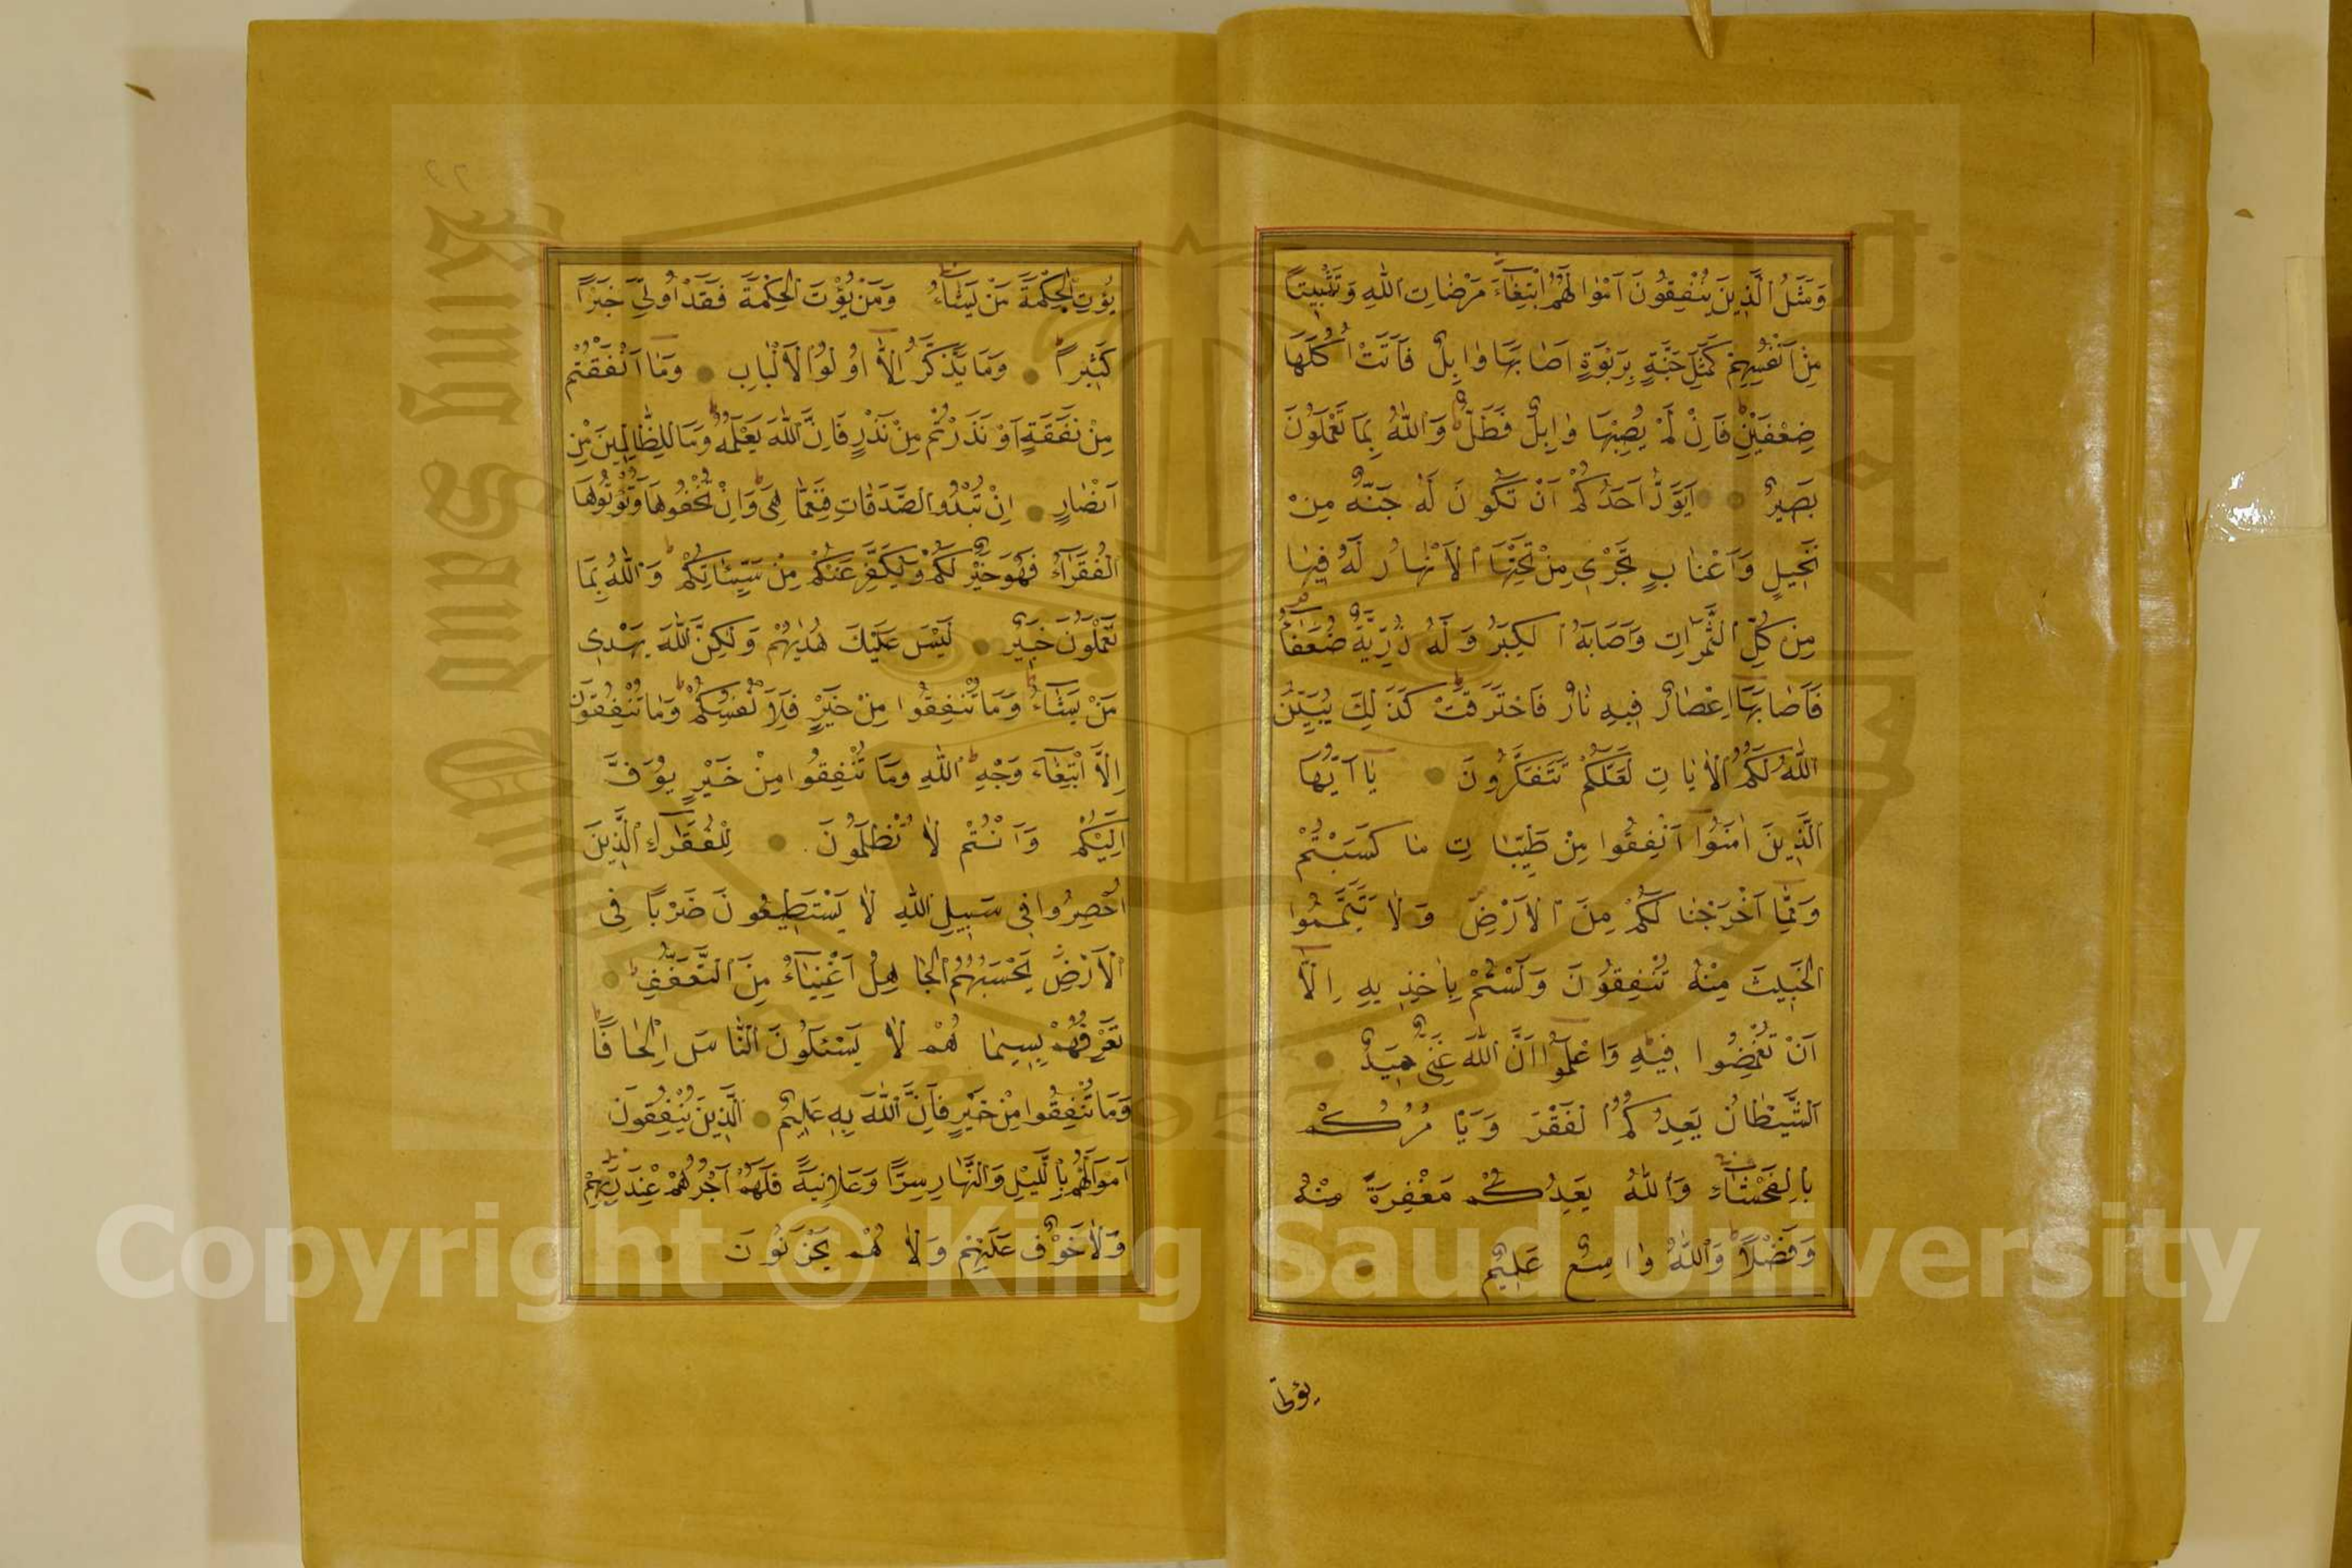 وَمَثَلُ الَّذِينَ يُنْفِقُونَ اَمْوَالَهُمُ ابْتِغَاءَ مَرْضَاتِ اللهِ وَتَثْبِيتًا
مِنْ اَنْفُسِهِمْ كَمَثَلِ جَنَّةٍ بِرَبْوَةٍ اَصَابَهَا وَابِلٌ فَاٰتَتْ اُكُلَهَا
ضِعْفَيْنِ فَاِنْ لَمْ يُصِبْهَا وَابِلٌ فَطَلٌّ وَاللهُ بِمَا تَعْمَلُونَ
بَصِيرٌ اَيَوَدُّ اَحَدُكُمْ اَنْ تَكُونَ لَهُ جَنَّةٌ مِنْ
نَخِيلٍ وَاَعْنَابٍ تَجْرِى مِنْ تَحْتِهَا الْاَنْهَارُ لَهُ فِيهَا
مِنْ كُلِّ الثَّمَرَاتِ وَاَصَابَهُ الْكِبَرُ وَلَهُ ذُرِّيَّةٌ ضُعَفَاءُ
فَاَصَابَهَا اِعْصَارٌ فِيهِ نَارٌ فَاحْتَرَقَتْ كَذٰلِكَ يُبَيِّنُ
اللهُ لَكُمُ الْاٰيَاتِ لَعَلَّكُمْ تَتَفَكَّرُونَ يَا اَيُّهَا
الَّذِينَ اٰمَنُوا اَنْفِقُوا مِنْ طَيِّبَاتِ مَا كَسَبْتُمْ
وَمِمَّا اَخْرَجْنَا لَكُمْ مِنَ الْاَرْضِ وَلَا تَيَمَّمُوا
الْخَبِيثَ مِنْهُ تُنْفِقُونَ وَلَسْتُمْ بِاٰخِذِيهِ اِلَّا
اَنْ تُغْمِضُوا فِيهِ وَاعْلَمُوا اَنَّ اللهَ غَنِىٌّ حَمِيدٌ
اَلشَّيْطَانُ يَعِدُكُمُ الْفَقْرَ وَيَاْمُرُكُمْ
بِالْفَحْشَاءِ وَاللهُ يَعِدُكُمْ مَغْفِرَةً مِنْهُ
وَفَضْلًا وَاللهُ وَاسِعٌ عَلِيمٌ
يؤتى
يُؤْتِى الْحِكْمَةَ مَنْ يَشَاءُ وَمَنْ يُؤْتَ الْحِكْمَةَ فَقَدْ اُوتِىَ خَيْرًا
كَثِيرًا وَمَا يَذَّكَّرُ اِلَّا اُولُوا الْاَلْبَابِ وَمَا اَنْفَقْتُمْ
مِنْ نَفَقَةٍ اَوْ نَذَرْتُمْ مِنْ نَذْرٍ فَاِنَّ اللهَ يَعْلَمُهُ وَمَا لِلظَّالِمِينَ مِنْ
اَنْصَارٍ اِنْ تُبْدُوا الصَّدَقَاتِ فَنِعِمَّا هِىَ وَاِنْ تُخْفُوهَا وَتُؤْتُوهَا
الْفُقَرَاءَ فَهُوَ خَيْرٌ لَكُمْ وَيُكَفِّرُ عَنْكُمْ مِنْ سَيِّئَاتِكُمْ وَاللهُ بِمَا
تَعْمَلُونَ خَبِيرٌ لَيْسَ عَلَيْكَ هُدٰيهُمْ وَلٰكِنَّ اللهَ يَهْدِى
مَنْ يَشَاءُ وَمَا تُنْفِقُوا مِنْ خَيْرٍ فَلِاَنْفُسِكُمْ وَمَا تُنْفِقُونَ
اِلَّا ابْتِغَاءَ وَجْهِ اللهِ وَمَا تُنْفِقُوا مِنْ خَيْرٍ يُوَفَّ
اِلَيْكُمْ وَاَنْتُمْ لَا تُظْلَمُونَ لِلْفُقَرَاءِ الَّذِينَ
اُحْصِرُوا فِى سَبِيلِ اللهِ لَا يَسْتَطِيعُونَ ضَرْبًا فِى
الْاَرْضِ يَحْسَبُهُمُ الْجَاهِلُ اَغْنِيَاءَ مِنَ التَّعَفُّفِ
تَعْرِفُهُمْ بِسِيمَاهُمْ لَا يَسْئَلُونَ النَّاسَ اِلْحَافًا
وَمَا تُنْفِقُوا مِنْ خَيْرٍ فَاِنَّ اللهَ بِهِ عَلِيمٌ اَلَّذِينَ يُنْفِقُونَ
اَمْوَالَهُمْ بِالَّيْلِ وَالنَّهَارِ سِرًّا وَعَلَانِيَةً فَلَهُمْ اَجْرُهُمْ عِنْدَ رَبِّهِمْ
وَلَا خَوْفٌ عَلَيْهِمْ وَلَا هُمْ يَحْزَنُونَ
Copyright © King Saud University